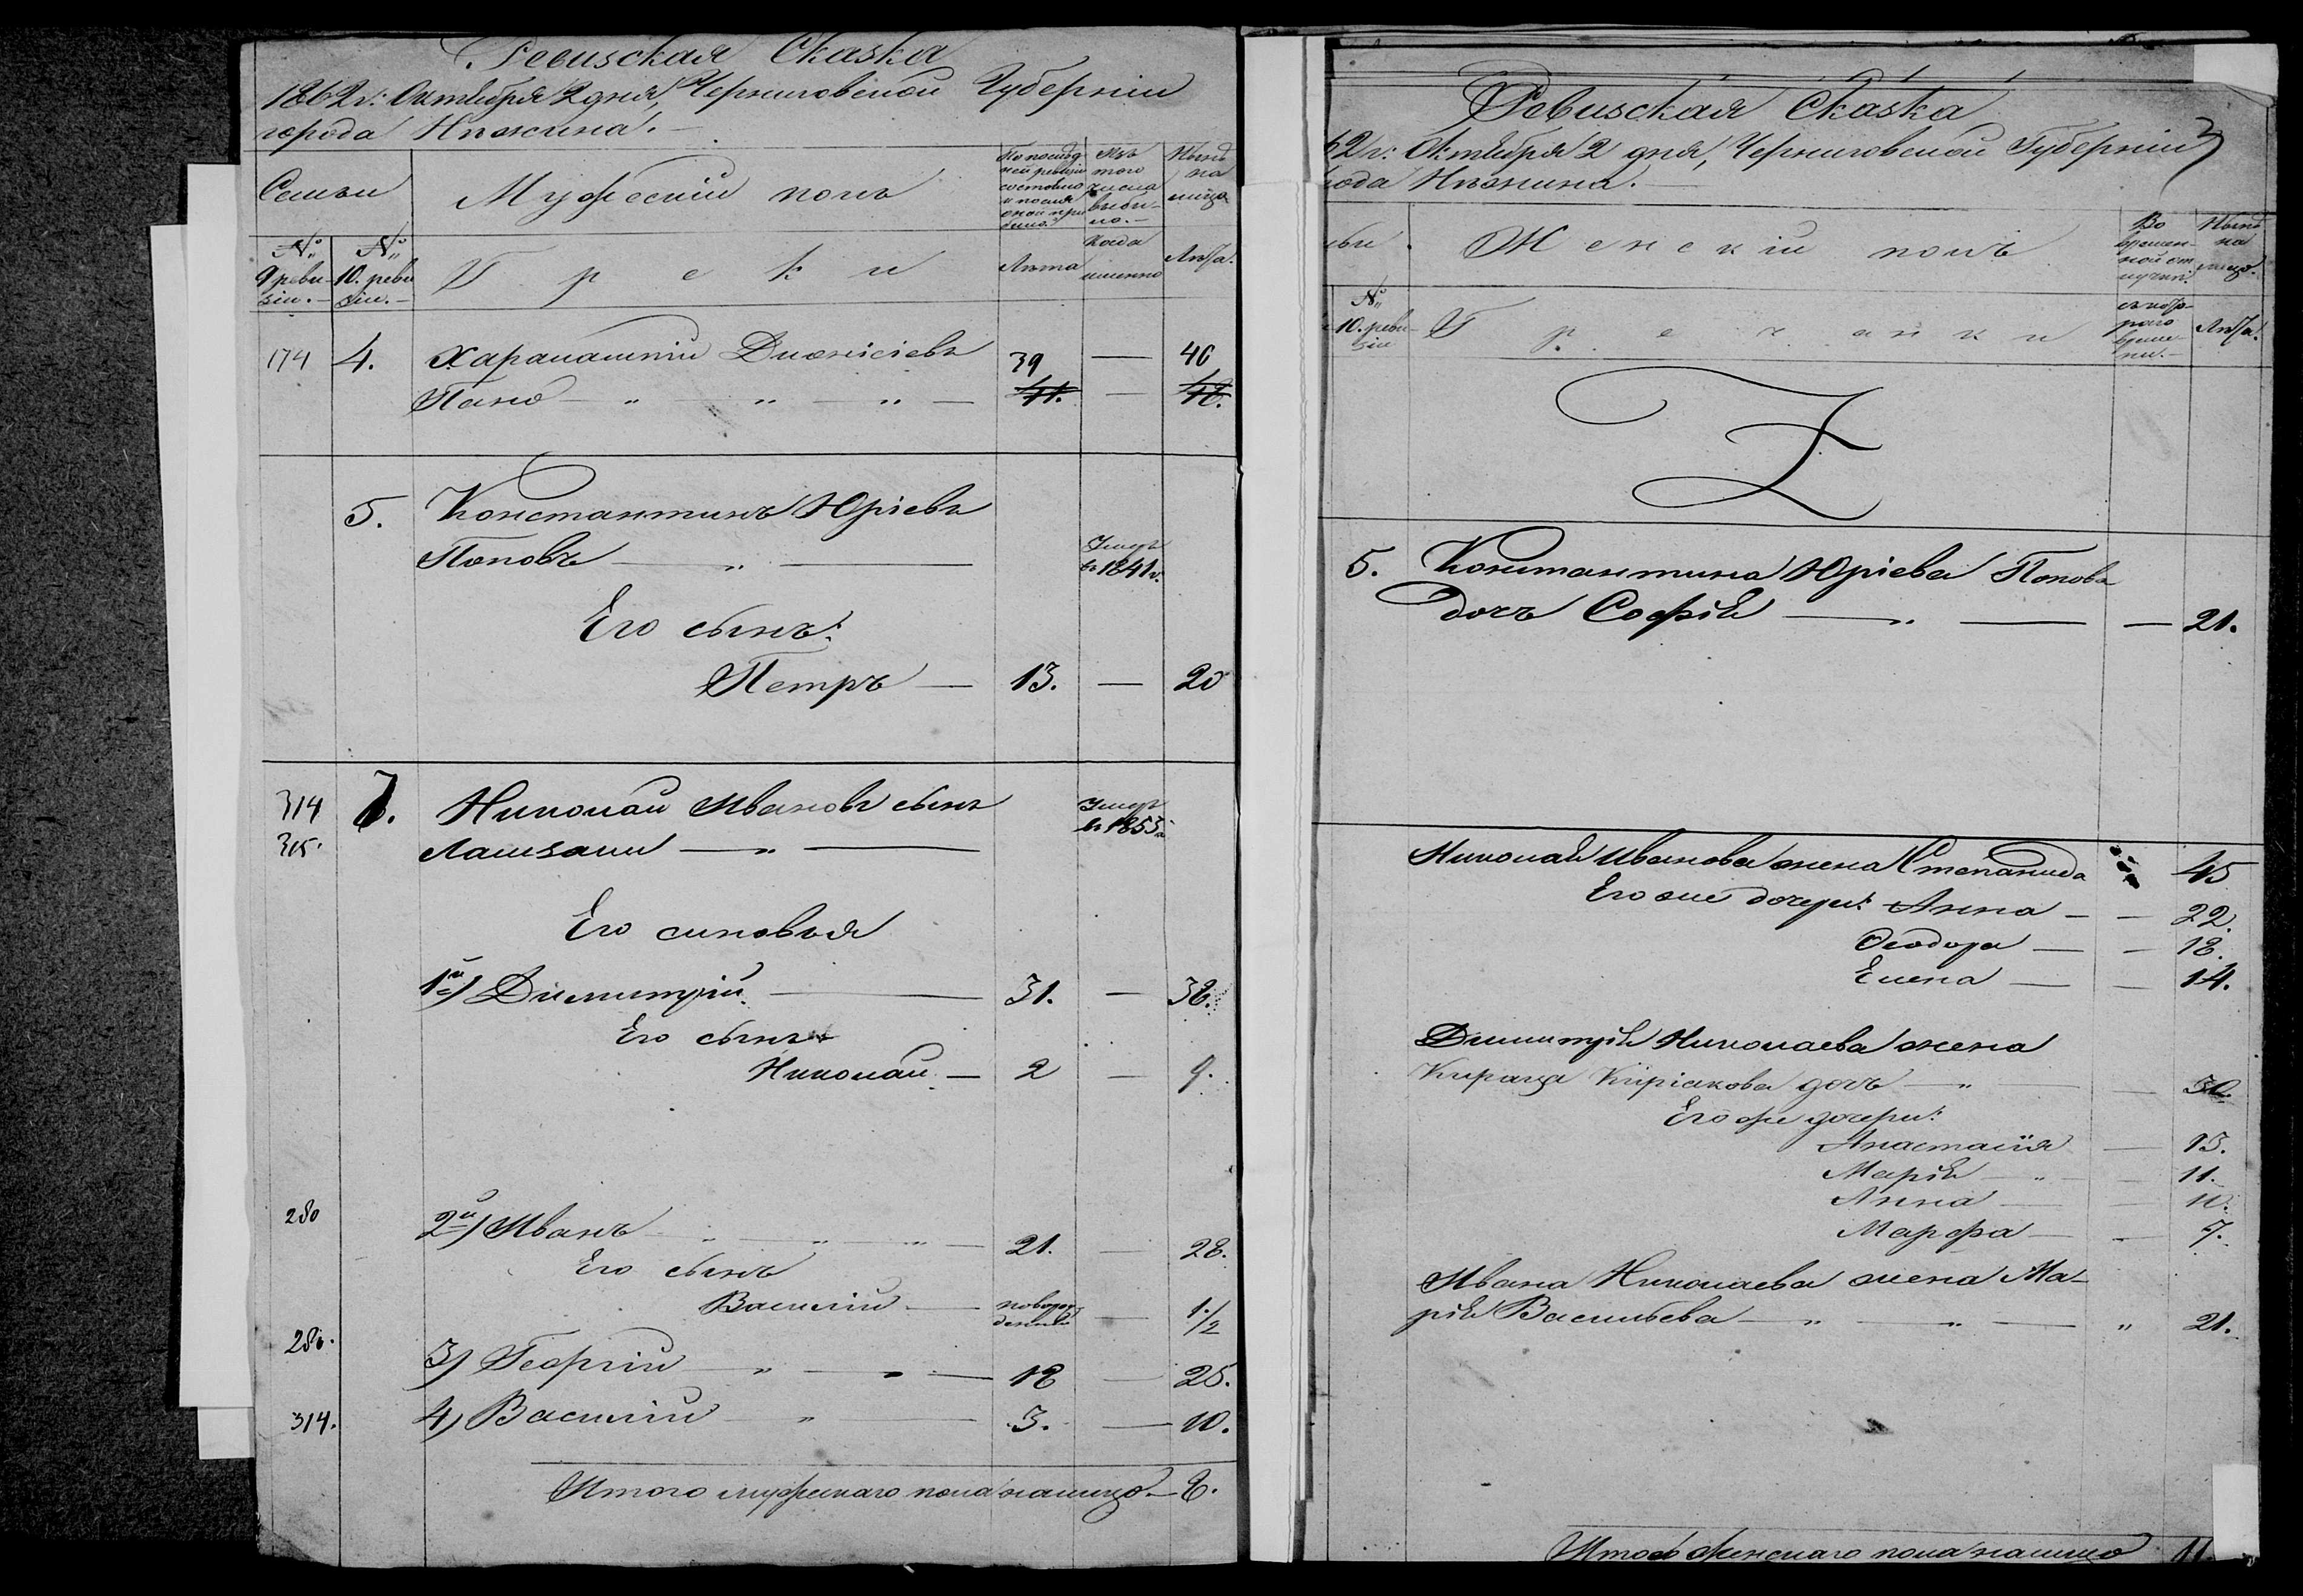 Ревизская Сказка
1862 г: Октября 2 дня, Черниговской Губернии
города Нежина.
Семьи Мужеский полъ По послѣдней ревизіи состояло и послѣ оной прибыло Изъ того числа выбыло. Нынѣ на лицо
№ 9 ревизіи. № 10. ревизіи. Г р е к и Лѣта когда именно Лѣта.
174 4. Харалампій Діонисіевъ 39 — 46
Пано — 41. — 48.
5. Константинъ Юріевъ
Поповъ — Умеръ въ 1841 г.
Его сынъ:
Петръ — 13. — 20
314 7. Николай Ивановъ сынъ Умеръ въ 1853 г.
315.
Его сыновья
1й) Димитрій. — 31. — 38.
Его сынъ
Николай. — 2 — 9.
280 2й) Иванъ — 21. — 28.
Его сынъ
Василій — новорожденный — 1/2
280. 3) Георгій — 18 — 25.
314. 4) Василій — 3. — 10.
Итого мужескаго пола налицо — 8.
Ревизская Сказка
62 г: Октября 2 дня, Черниговской Губерніи 3
рода Нежина.
ьи. Женскій полъ Во временной отлучкѣ. Нынѣ на лицо.
№ 10. ревизіи Г р е ч а н к и съ котораго времени. Лѣта.
5. Константина Юріева Попова
дочь Софія — — 21.
Николая Иванова жена Степанида 45
Его же дочери: Анна — — 22.
Феодора — — 18.
Елена — — 14.
Димитрія Николаева жена
Кираца Киріакова дочь — — 30
Его же дочери:
Анастасія — 13.
Марія — 11.
Анна — 10.
Марфа — 7.
Ивана Николаева жена Ма-
рія Васильева — 21.
Итого женскаго пола налицо 11.